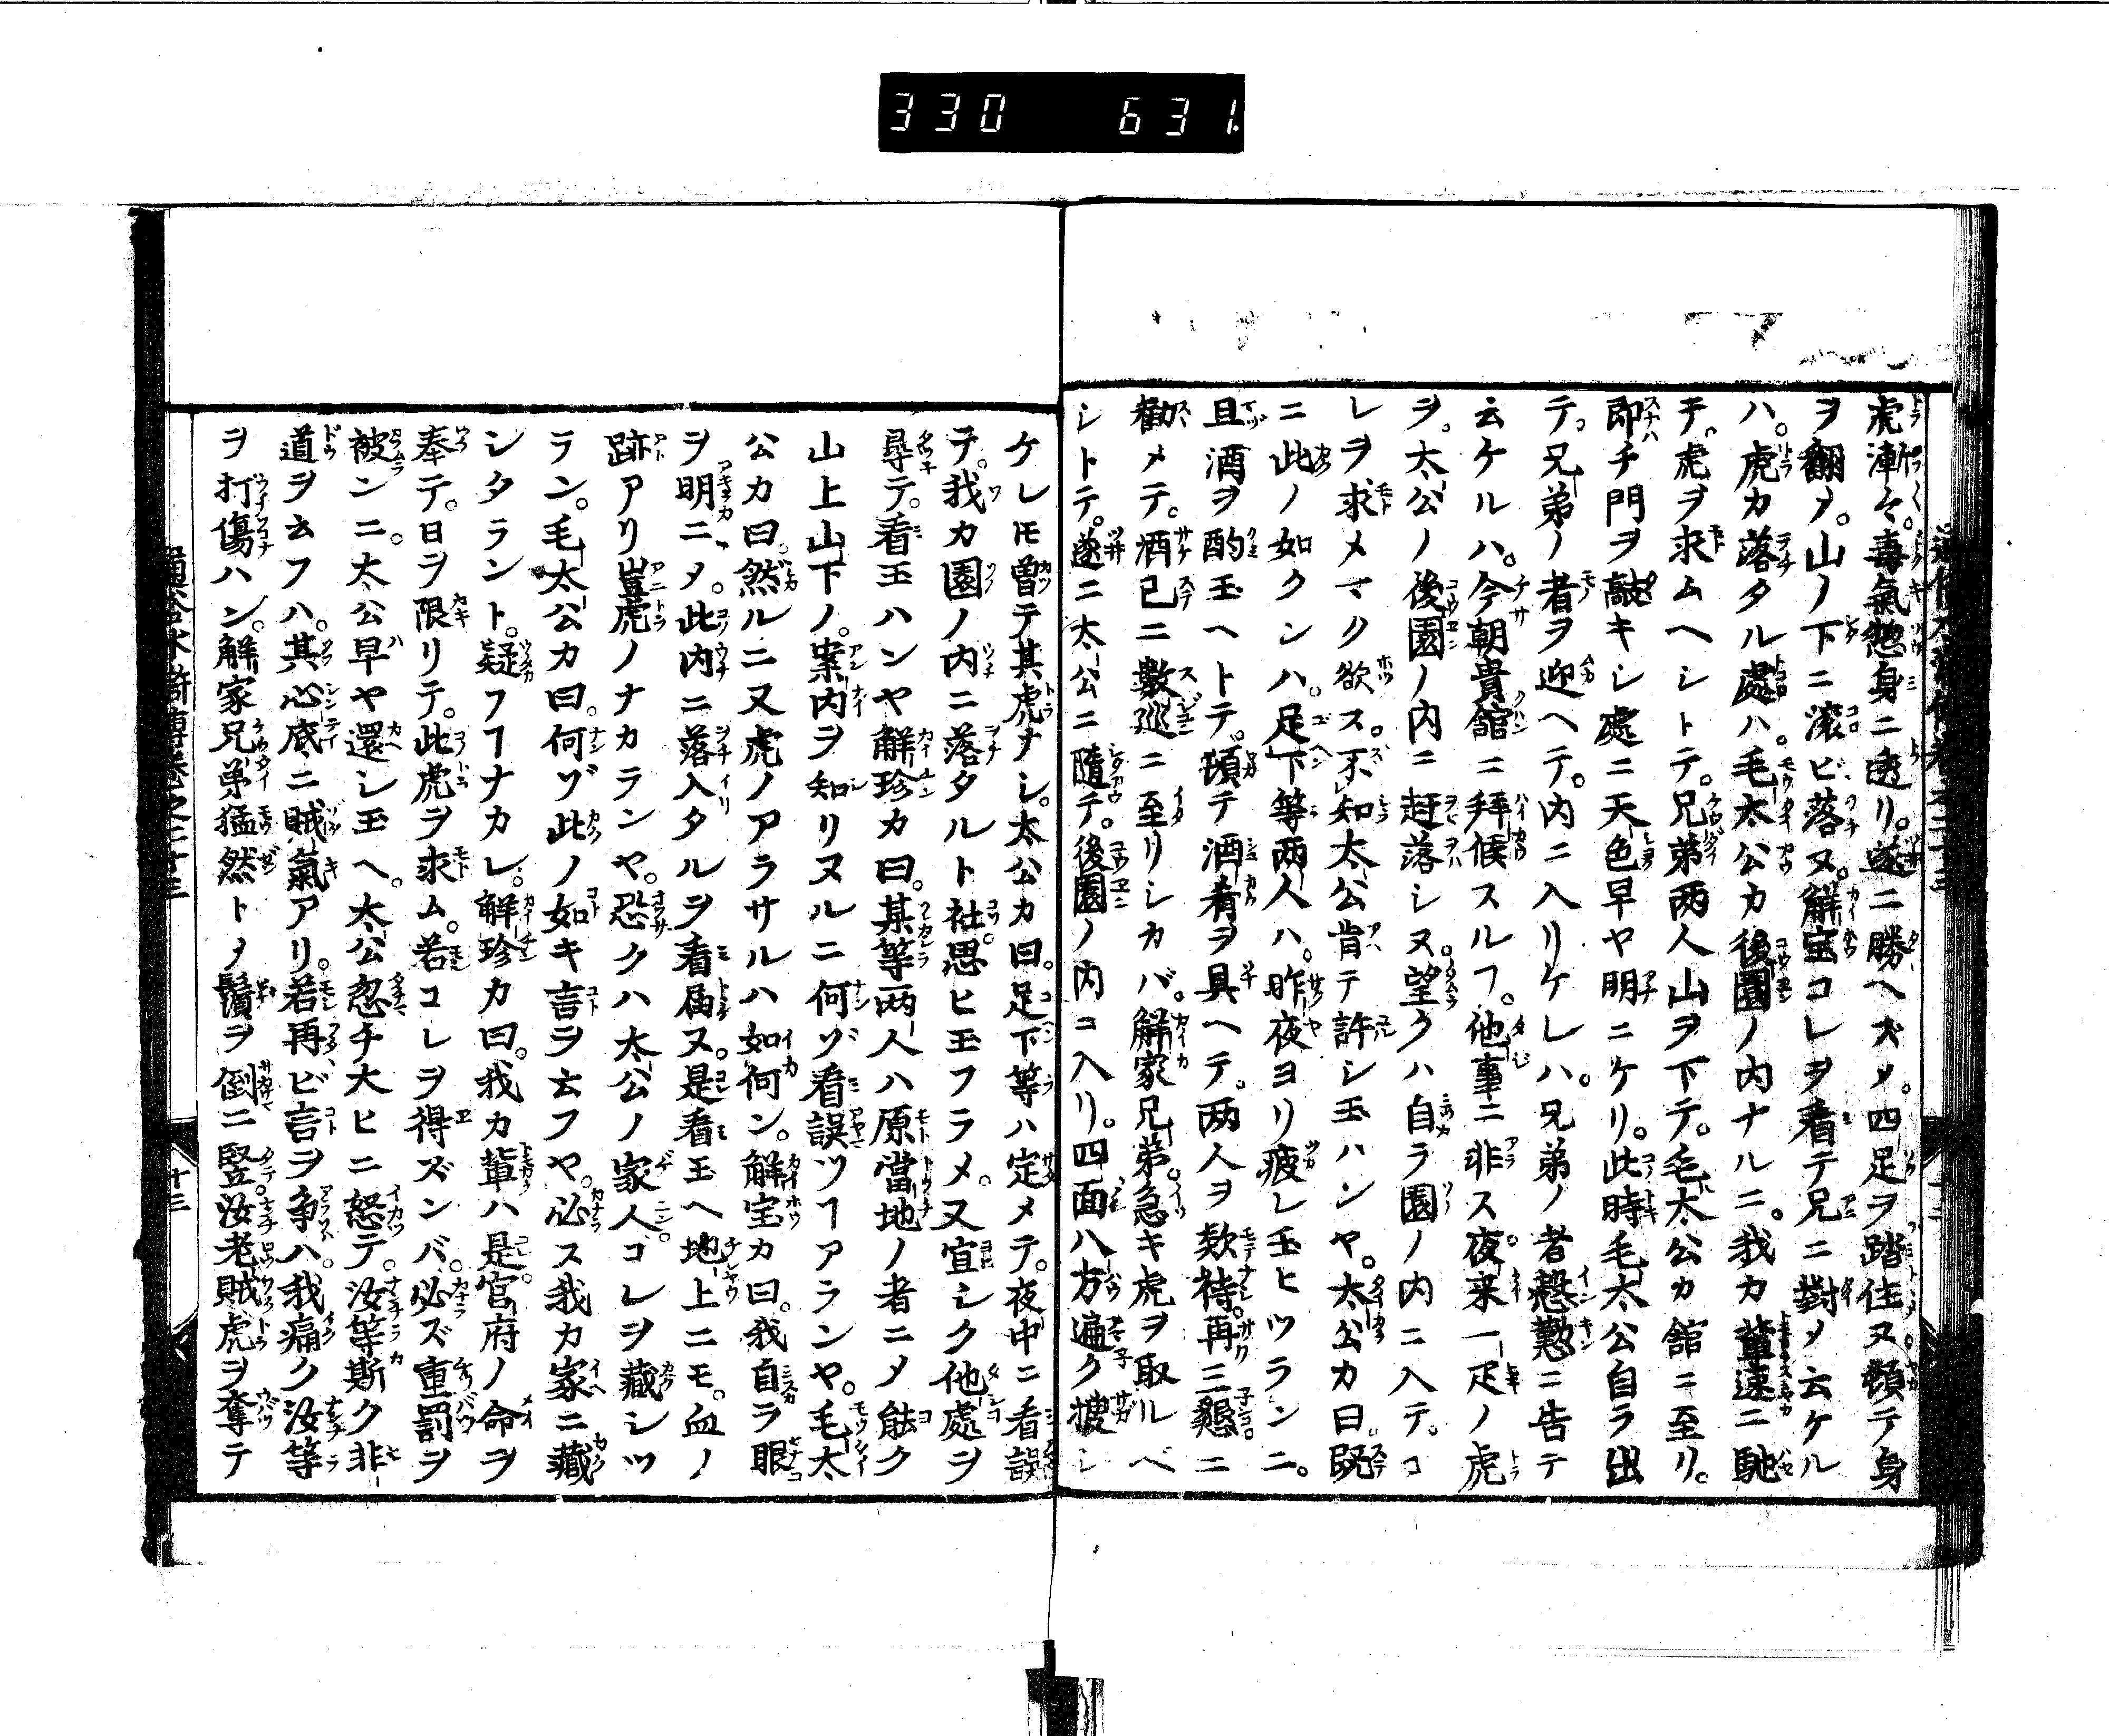 330 631
虎漸々毒氣惣身ニ透リ。遂ニ勝ヘズメ。四足ヲ踏住ヌ。頓テ身
ヲ翻メ。山ノ下ニ滚ビ落ヌ。解宝コレヲ看テ兄ニ對メ云ケル
ハ。虎カ落タル處ハ。毛太公カ後園ノ内ナルニ。我カ輩速ニ馳
テ。虎ヲ求ムヘシトテ。兄弟两人山ヲ下テ。毛太公カ舘ニ至リ。
即チ門ヲ敲キシ處ニ天色早ヤ明ニケリ。此時毛太公自ラ出
テ。兄弟ノ者ヲ迎ヘテ。内ニ入リケレハ。兄弟ノ者慇懃ニ告テ
云ケルハ。今朝貴舘ニ拜候スルヿ。他事ニ非ス夜来一疋ノ虎
ヲ。太公ノ後園ノ内ニ赶落シヌ。望クハ自ラ園ノ内ニ入テ。コ
レヲ求メマク欲ス。不知太公肯テ許シ玉ハンヤ。太公カ曰。既
ニ此ノ如クンハ。足下等两人ハ。昨夜ヨリ疲レ玉ヒツランニ。
且酒ヲ酌玉ヘトテ。頓テ酒肴ヲ具ヘテ。两人ヲ欵待。再三懇ニ
勸メテ。酒已ニ數巡ニ至リシカバ。解家兄弟。急キ虎ヲ取ルベ
シトテ。遂ニ太公ニ隨テ。後園ノ内コ入リ。四面八方遍ク搜シ
ケレモ曽テ其虎ナシ。太公カ曰。足下等ハ定メテ。夜中ニ看誤
テ。我カ園ノ内ニ落タルト社。思ヒ玉フラメ。又宜シク他處ヲ
尋テ。看玉ハンヤ解珍カ曰。某等两人ハ原當地ノ者ニメ能ク
山上山下ノ。案内ヲ知リヌルニ何ゾ看誤ツヿアランヤ。毛太
公カ曰。然ルニ又虎ノアラサルハ如何ン。解宝カ曰。我自ラ眼
ヲ明ニメ。此内ニ落入タルヲ看届ヌ。是看玉ヘ地上ニモ。血ノ
跡アリ豈虎ノナカランヤ。恐クハ太公ノ家人。コレヲ藏シツ
ラン。毛太公カ曰。何ゾ此ノ如キ言ヲ云フヤ。必ス我カ家ニ藏
シタラント。疑フヿナカレ。解珍カ曰。我カ輩ハ是。官府ノ命ヲ
奉テ。日ヲ限リテ。此虎ヲ求ム。若コレヲ得ズンバ。必ズ重罰ヲ
被ンニ。太公早ヤ還シ玉ヘ。太公忽チ大ヒニ怒テ。汝等斯ク非
道ヲ云フハ。其心底ニ賊氣アリ。若再ビ言ヲ争ハ。我痛ク汝等
ヲ打傷ハン。解家兄弟猛然トメ鬚ヲ倒ニ竪。汝老賊虎ヲ奪テ
十三